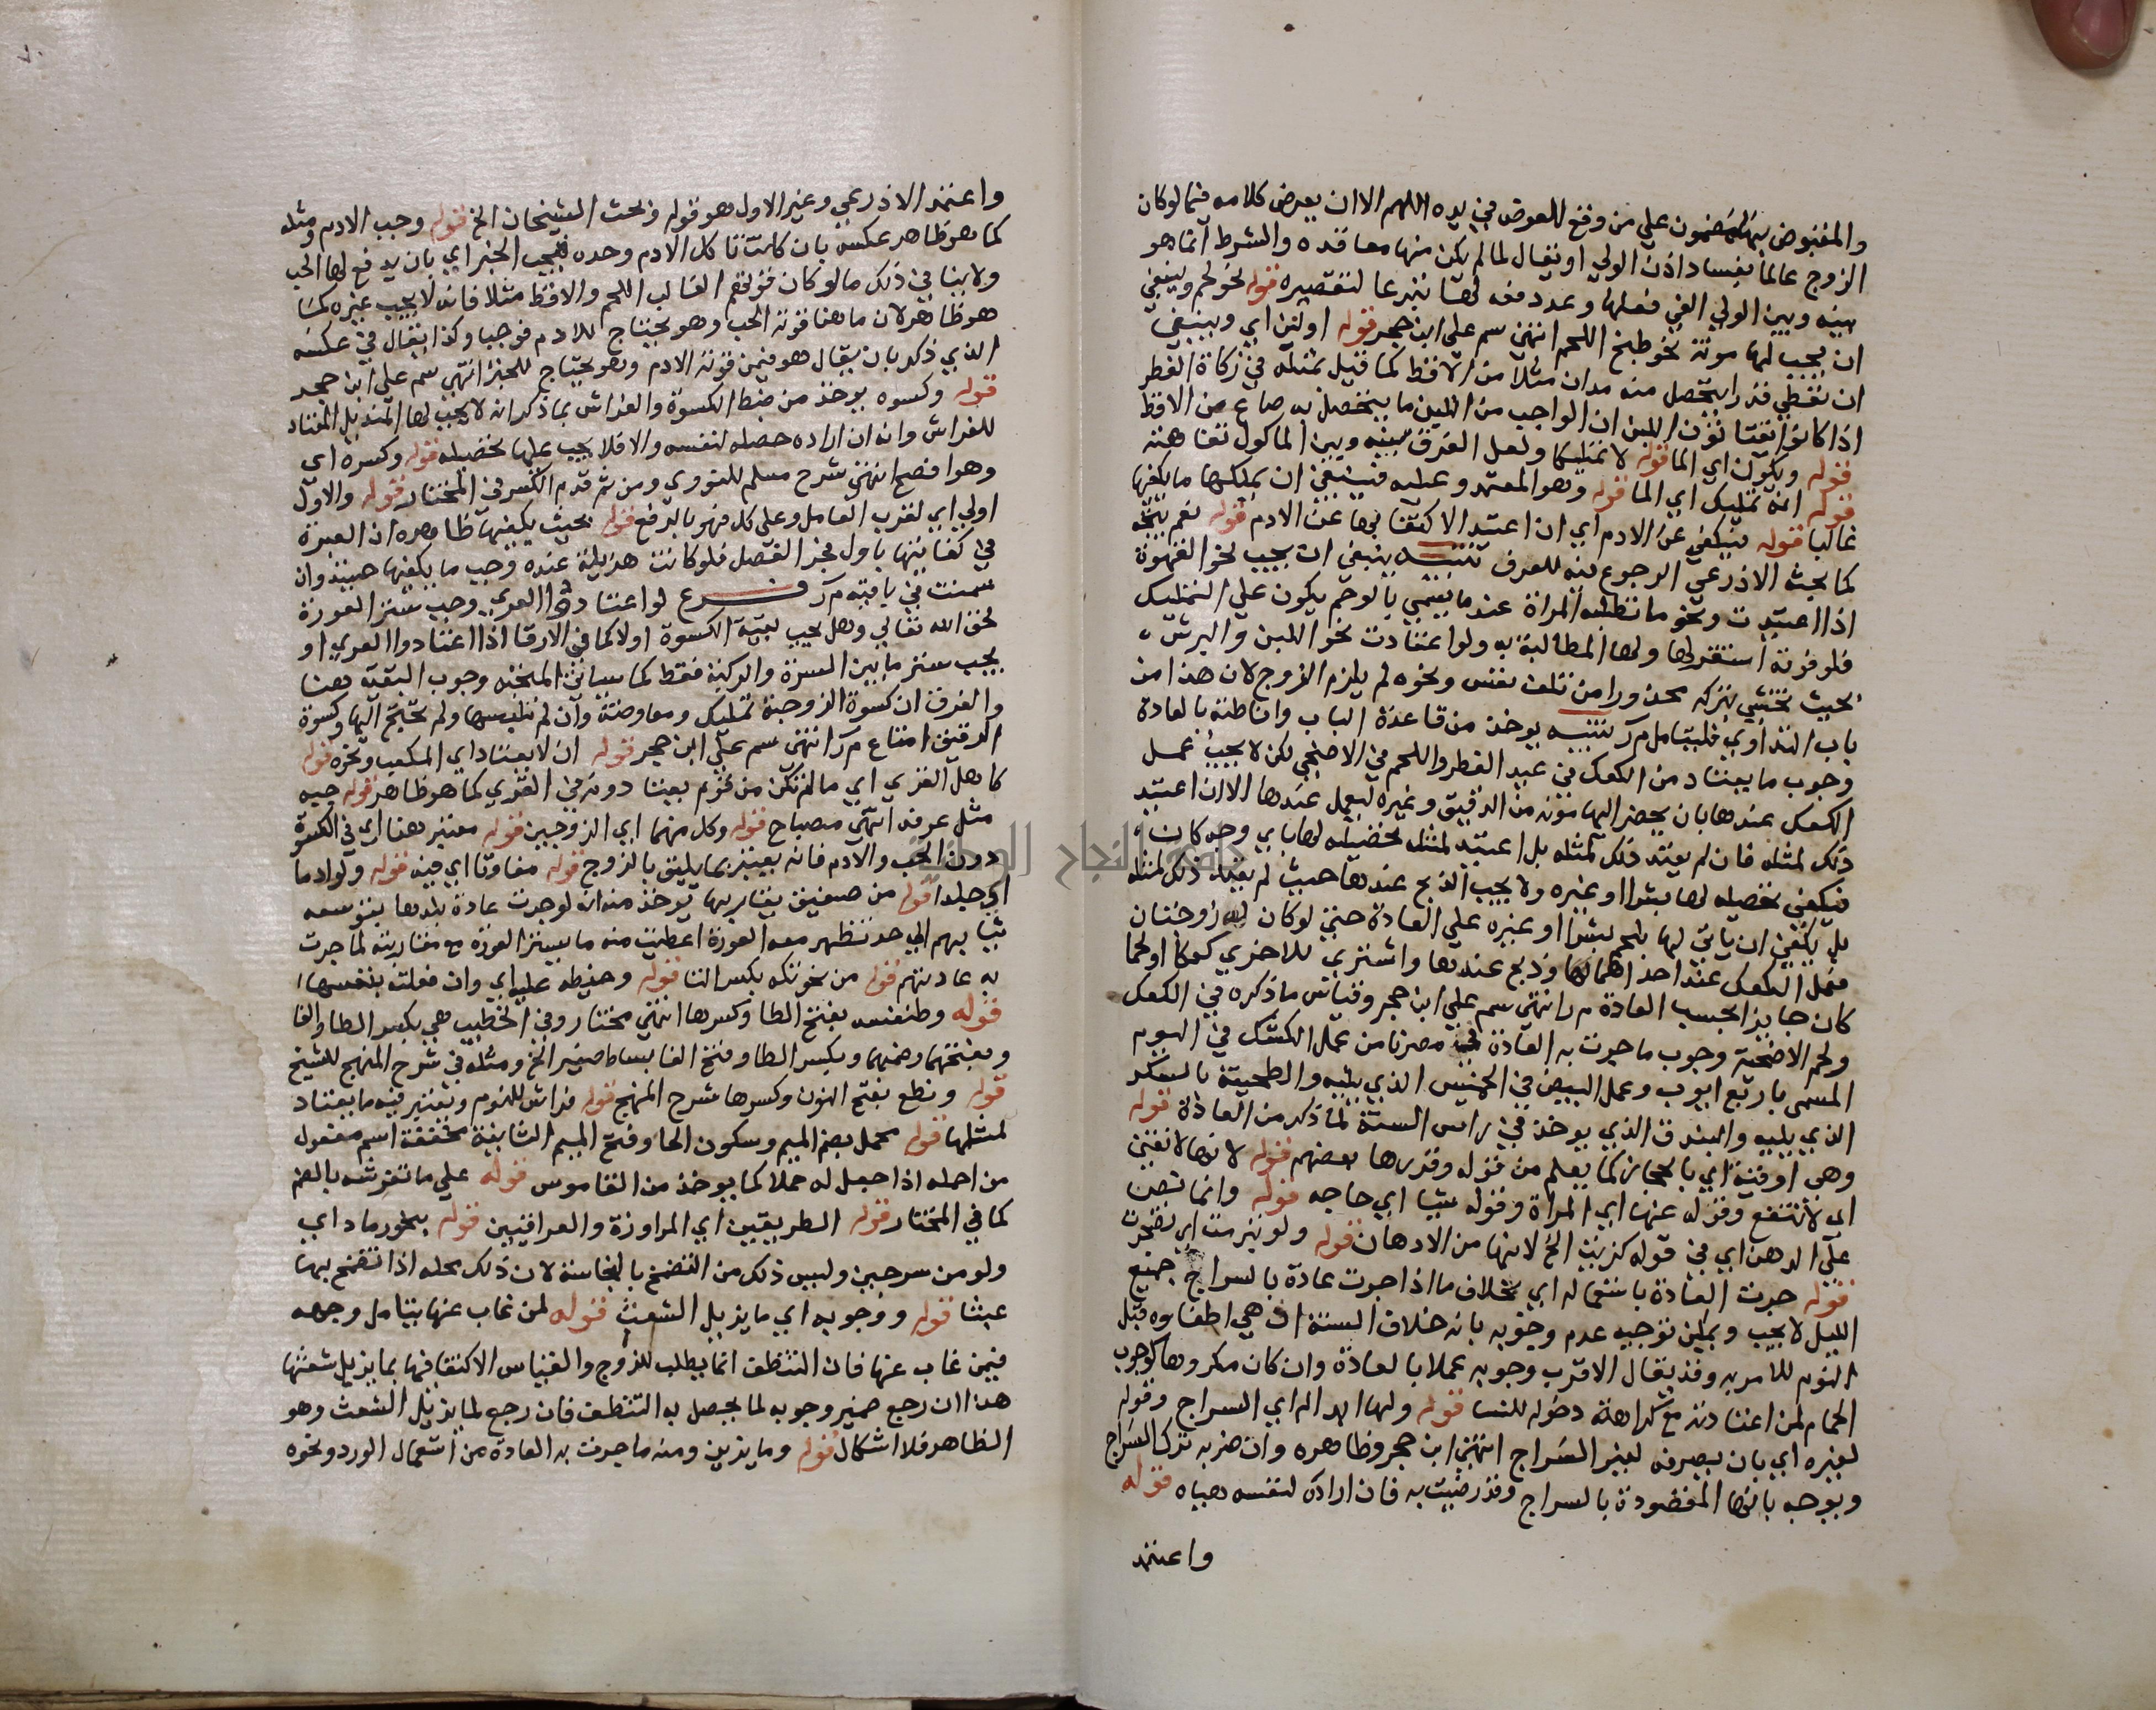 والمقبوض بها مضمون على من وقع العوض في يده اللهم الا ان يعرض كلامه فيما لو كان
الزوج عالما بفساد اذن الولي او يقال لما لم يكن منها معاقدة والشرط انما هو
بينه وبين الولي الغي فعلها وعد دفعه لها تبرعا لتقصيره قوله نحو لحم وينبغي
ان يجب لها مونة نحو طبخ اللحم انتهى سم على ابن حجر قوله او لبن اي وينبغي
ان تعطي قدرا يتحصل منه مدان مثلا من الاقط كما قيل بمثله في زكاة الفطر
اذا كانوا يقتاتون اللبن ان الواجب من اللبن ما يتحصل به صاع من الاقط
قوله ويكون اي الما قوله لا تمليكا ولعل الفرق بينه وبين الماكول تفاهته
قوله انه تمليك اي الما قوله وهو المعتمد وعليه فينبغي ان يملكها ما يكفيها
غالبا قوله فيكفي عن الادم اي ان اعتيد الاكتفا بها عن الادم قوله نعم يتجه
كما بحث الاذرعي الرجوع فيه للعرف تنبيه ينبغي ان يجب نحو القهوة
اذا اعتيدت ونحو ما تطلبه المراة عند ما يسمى بالوحم يكون على التمليك
فلو فوته استقر لها ولها المطالبة به ولو اعتادت نحو اللبن والبرش
بحيث تخشى بتركه محذورا من تلف نفس ونحوه لم يلزم الزوج لان هذا من
باب التداوي فليتامل م ر تنبيه يوخذ من قاعدة الباب واناطته بالعادة
وجوب ما يعتاد من الكعك في عيد الفطر واللحم في الاضحى لكن لا يجب عمل
الكعك عندها بان يحضر اليها مونه من الدقيق وغيره ليعمل عندها الا ان اعتيد
ذلك لمثله فان لم يعتد ذلك لمثله بل اعتيد لمثله تحصيله لها باي وجه كان
فيكفي تحصيله لها بشرا او غيره ولا يجب الذبح عندها حيث لم يعتد ذلك لمثله
بل يكفي ان ياتي لها بلحم بشرا او غيره على العادة حتى لو كان له زوجتان
فعمل الكعك عند احداهما وذبح عندها واشترى للاخرى كعكا او لحما
كان جايزا بحسب العادة م ر انتهى سم على ابن حجر وقياس ما ذكره في الكعك
ولحم الاضحية وجوب ما جرت به العادة في مصرنا من عمل الكشك في اليوم
المسمى باربع ايوب وعمل البيض في الخميس الذي يليه والطحينة بالسكر
الذي يليه والبندق الذي يوخذ في راس السنة لما ذكر من العادة قوله
وهي اوقية اي بالحجاز كما يعلم من قوله وقدرها بعضهم قوله لانها لا تغني
اي لا تنفع وقوله عنها اي المراة وقوله شيا اي حاجة قوله وانما نص
على الدهن اي في قوله كزيت الخ لانها من الادهان قوله ولو تبرمت اي تضجرت
قوله جرت العادة باستعماله اي بخلاف ما اذا جرت عادة بالسراج جميع
الليل لا يجب ويمكن توجيه عدم وجوبه بانه خلاف السنة اذ هي اطفاوه قبل
النوم للامر به وقد يقال الاقرب وجوبه عملا بالعادة وان كان مكروها كوجوب
الحمام لمن اعتادته مع كراهة دخوله للنسا قوله ولها ابداله اي السراج وقوله
لغيره اي بان يصرفه لغير السراج انتهى ابن حجر وظاهره وان ضر به ترك السراج
ويوجه بانها المقصودة بالسراج وقد رضيت به فان اراده لنفسه هياه قوله
واعتمد
واعتمد الاذرعي وغير الاول هو قوله وبحث الشيخان الخ قوله وجب الادم ومثله
كما هو ظاهر عكسه بان كانت تاكل الادم وحده فيجب الخبز اي بان يدفع لها الحب
ولا ينافي ذلك ما لو كان قوتهم الغالب اللحم والاقط مثلا فانه لا يجب غيره كما
هو ظاهر لان ما هنا قوته الحب وهو يحتاج للادم فوجبا وكذا يقال في عكسه
الذي ذكر بان يقال هو فيمن قوته الادم وهو يحتاج للخبز انتهى سم على ابن حجر
قوله وكسوه يوخذ من ضبط الكسوة والفراش بما ذكر انه لا يجب لها المنديل المعتاد
للفراش وانه ان اراده حصله لنفسه والا فلا يجب عليها تحصيله قوله وكسره اي
وهو افصح انتهى شرح مسلم للنووي ومن ثم قدم الكسر في المختار قوله والاول
اولى اي لقرب العامل وعلى كل فهو بالرفع قوله بحيث يكفيها ظاهره ان العبرة
في كفايتها باول فجر الفصل فلو كانت هزيلة عنده وجب ما يكفيها حينئذ وان
سمنت في باقيه م ر فرع لو اعتادوا العري وجب ستر العورة
لحق الله تعالى وهل يجب بقية الكسوة اولا كما في الارقا اذا اعتادوا العري او
يجب ستر ما بين السرة والركبة فقط كما سياتي المتجه وجوب البقية هنا
والفرق ان كسوة الزوجة تمليك ومعاوضة وان لم تلبسها ولم تحتج اليها وكسوة
الرقيق امتاع م ر انتهى سم على ابن حجر قوله ان لا يعتاد اي المكعب ونحوه قوله
كاهل القرى اي ما لم تكن من قوم يعتادونه في القرى كما هو ظاهر قوله جبه
مثل غرفه انتهى مصباح قوله وكل منهما اي الزوجين قوله معتبر هنا اي في الكسوة
دون الحب والادم فانه يعتبر بما يليق بالزوج قوله مفاوتا اي فيه قوله ولو ادما
اي جلدا قوله من صفيق يقاربها يوخذ منه انه لو جرت عادة بلدها بتوسعه
ثيابهم الى حد تظهر معه العورة اعطيت منه ما يستر العورة مع مقاربته لما جرت
به عادتهم قوله من نحو تكه بكسر التا قوله وخيطه عليه اي وان فعلته بنفسها
قوله وطنفسه بفتح الطا وكسرها انتهى مختار وفي الخطيب هي بكسر الطا والفا
وبفتحهما وضمهما وبكسر الطا وفتح الفا بساط صغير الخ ومثله في شرح المنهج للشيخ
قوله ونطع بفتح النون وكسرها شرح المنهج قوله فراش للنوم ويعتبر فيه ما يعتاد
لمثلها قوله محمل بضم الميم وسكون الحا وفتح الميم الثانية مخففة اسم مفعول
من احمله اذا جعل له حملا كما يوخذ من القاموس قوله على ما تفرشه بالضم
كما في المختار قوله الطريقين اي المراوزة والعراقيين قوله بنحو رماد اي
ولو من سرجين وليس ذلك من التضمخ بالنجاسة لان ذلك محله اذا تضمخ بها
عبثا قوله ووجوبه اي ما يزيل الشعث قوله لمن غاب عنها يتامل وجهه
فيمن غاب عنها فان التنظف انما يطلب للزوج والقياس الاكتفا فيها بما يزيل شعثها
هذا ان رجع ضمير وجوبه لما يحصل به التنظف فان رجع لما يزيل الشعث وهو
الظاهر فلا اشكال قوله وما يزين ومنه ما جرت به العادة من استعمال الورد ونحوه